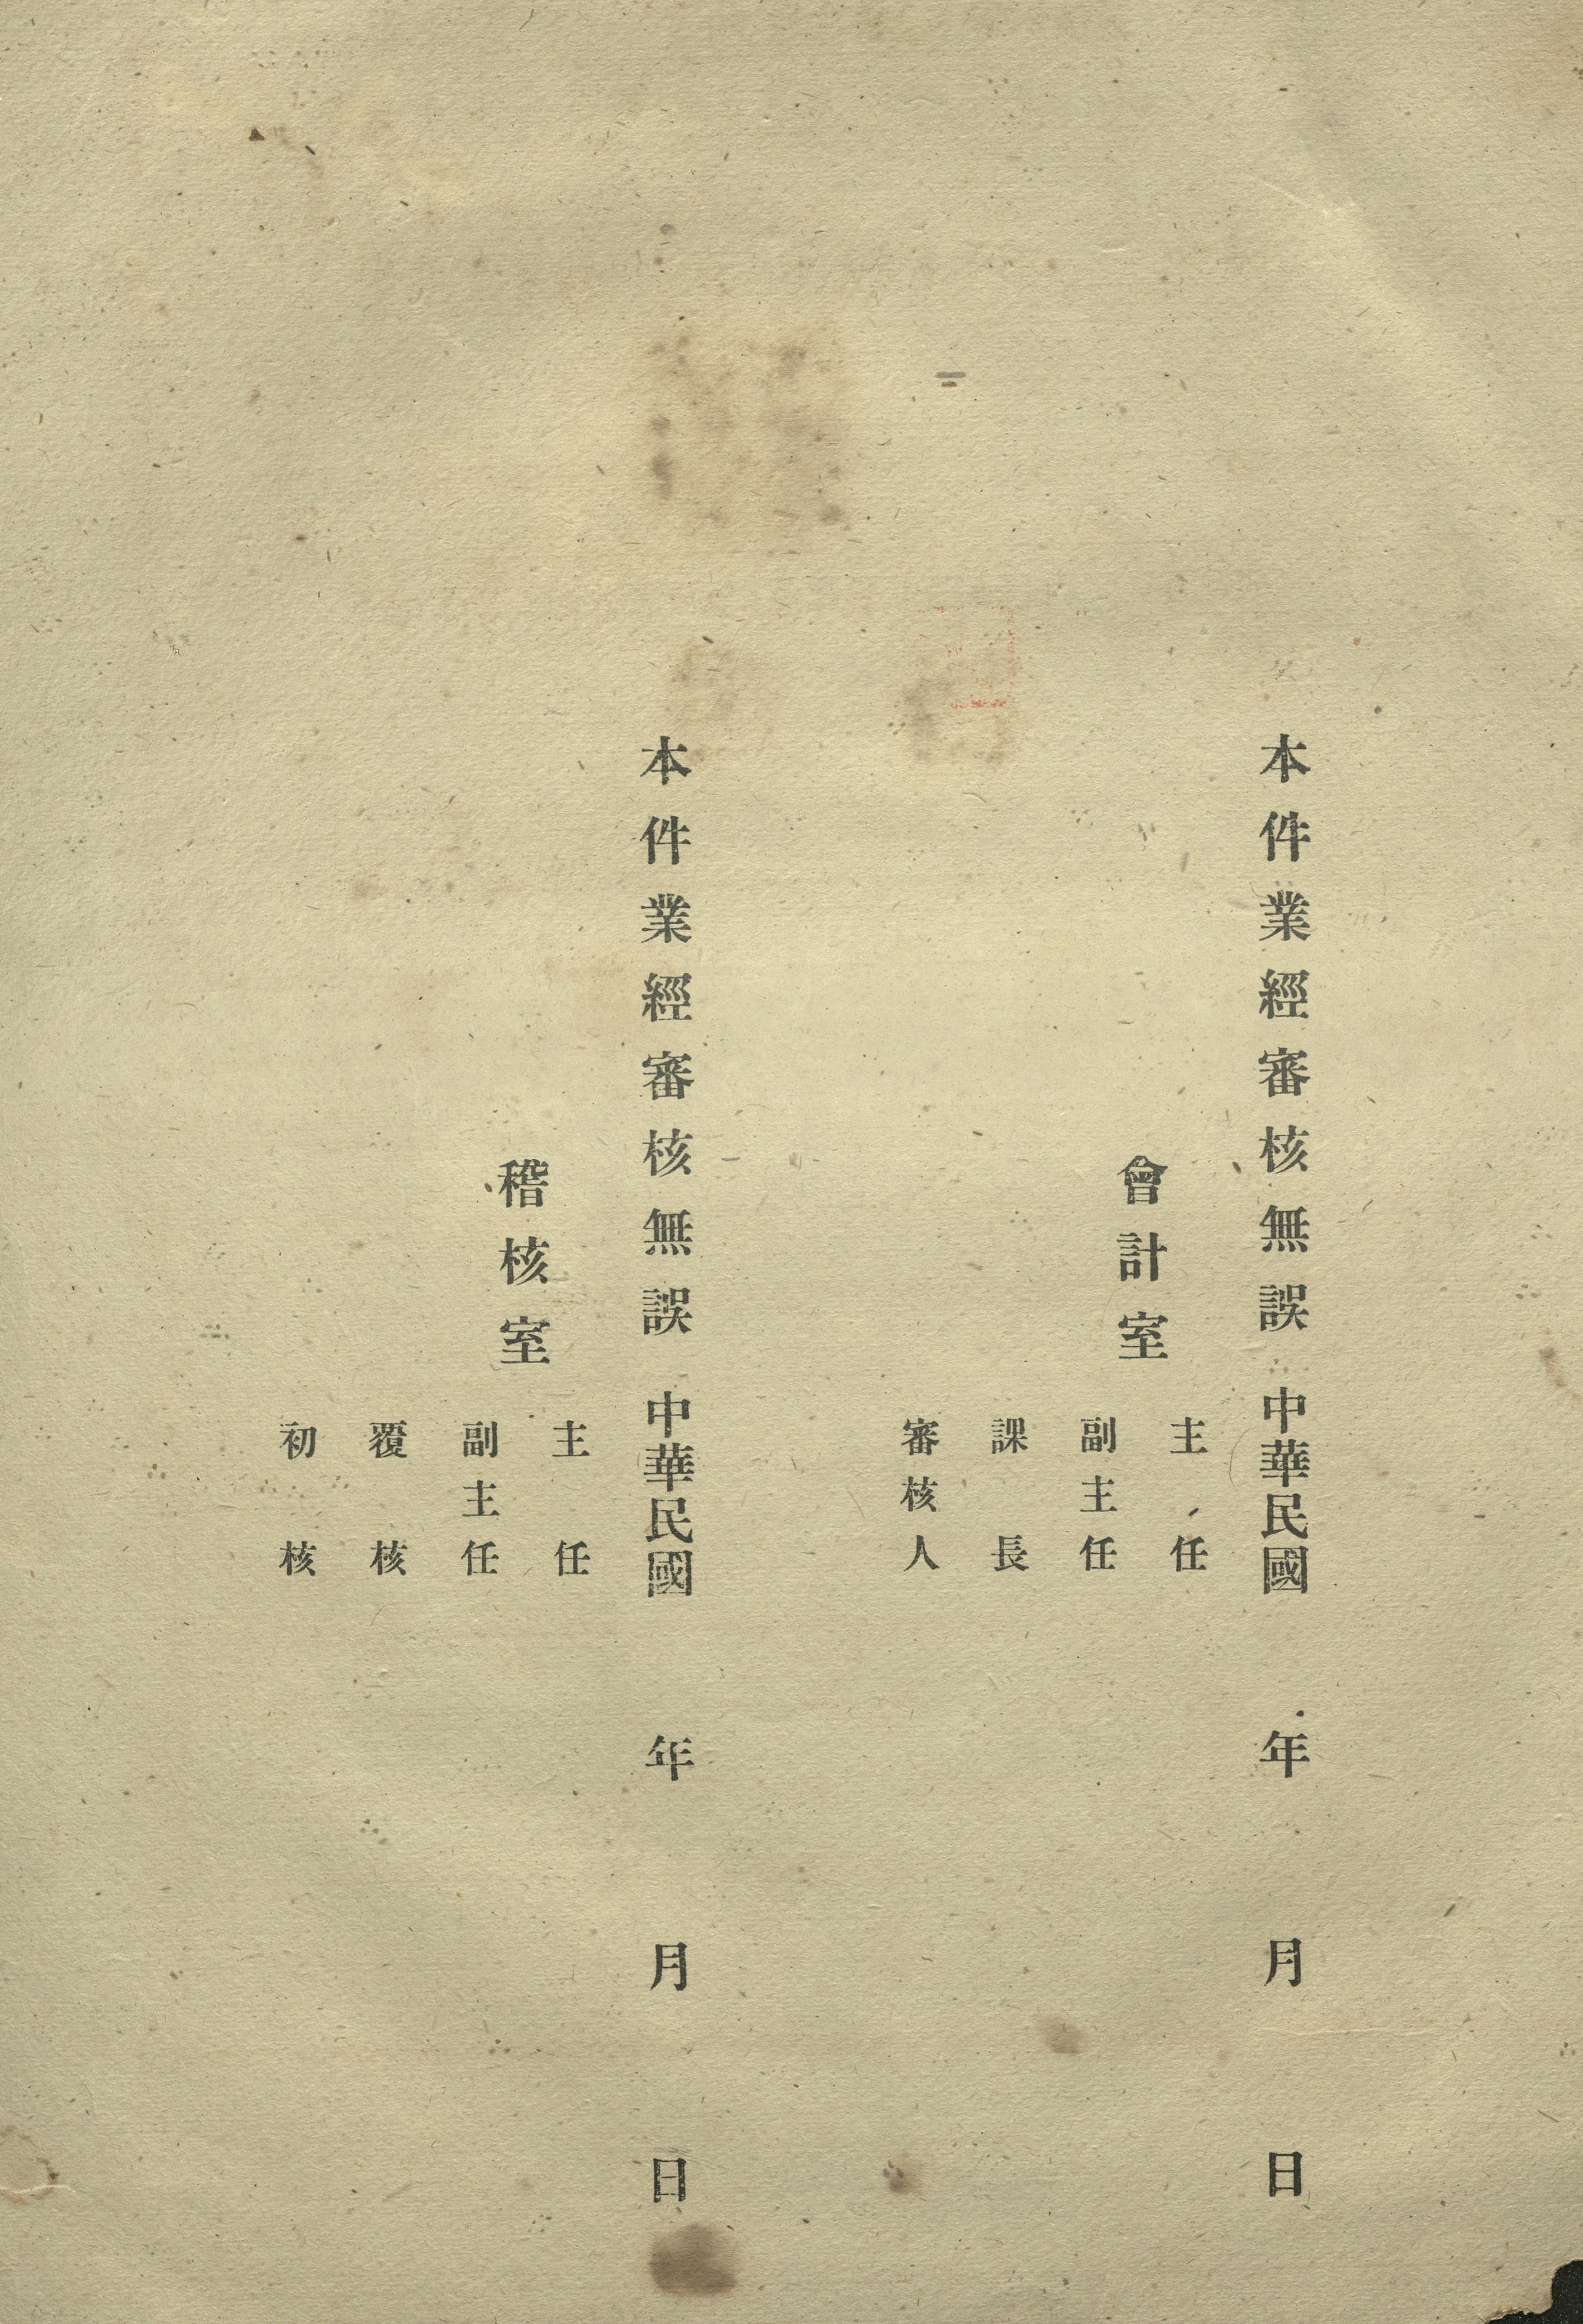 本件業經審核無誤 中華民國 年 月 日
會計室
主任
副主任
課長
審核人
本件業經審核無誤 中華民國 年 月 日
稽核室
主任
副主任
覆核
初核